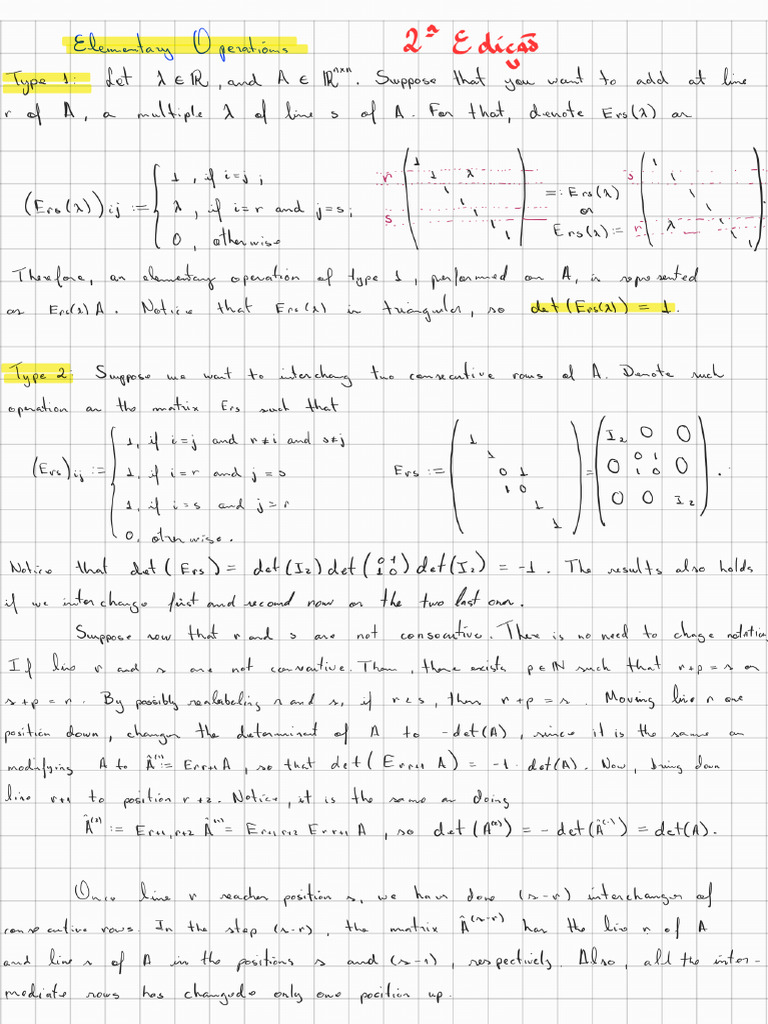 Elementary Operations 2ª Edição
Type 1: Let λ ∈ ℝ, and A ∈ ℝⁿˣⁿ. Suppose that you want to add at line
r of A, a multiple λ of line s of A. For that, denote Ers(λ) as
(Ers(λ))ij := { 1, if i=j; λ, if i=r and j=s; 0, otherwise
r s ( 1 1 λ 1 1 1 1 ) =: Ers(λ) or Ers(λ) := s r ( 1 1 1 1 λ 1 1 1 )
Therefore, an elementary operation of type 1, performed on A, is represented
as Ers(λ)A. Notice that Ers(λ) is triangular, so det(Ers(λ)) = 1.
Type 2: Suppose we want to interchang two consecutive rows of A. Denote such
operation as the matrix Ers such that
(Ers)ij := { 1, if i=j and r≠i and s≠j
1, if i=r and j=s
1, if i=s and j=r
0, otherwise.
Ers := ( 1 1 0 1 1 0 1 1 ) = ( I2 0 0 0 0 1 1 0 0 0 0 I2 ).
Notice that det(Ers) = det(I2) det(0 1 1 0) det(I2) = -1. The results also holds
if we interchange first and second row or the two last ones.
Suppose now that r and s are not consecutive. There is no need to change notation
If line r and s are not consecutive. Then, there exists p∈ℕ such that r+p=s or
s+p=r. By possibly realabeling r and s, if r<s, then r+p=s. Moving line r one
position down, changes the determinant of A to -det(A), since it is the same as
modifying A to Â⁽¹⁾ := Err+1 A, so that det(Err+1 A) = -1·det(A). Now, bring down
line r+1 to position r+2. Notice, it is the same as doing
Â⁽²⁾ := Er+1,r+2 Â⁽¹⁾ = Er+1,r+2 Err+1 A, so det(A⁽²⁾) = -det(Â⁽¹⁾) = det(A).
Once line r reaches position s, we have done (s-r) interchanges of
consecutive rows. In the step (s-r), the matrix Â⁽ˢ⁻ʳ⁾ has the line r of A
and line s of A in the positions s and (s-1), respectively. Also, all the inter-
mediate rows has changed only one position up.